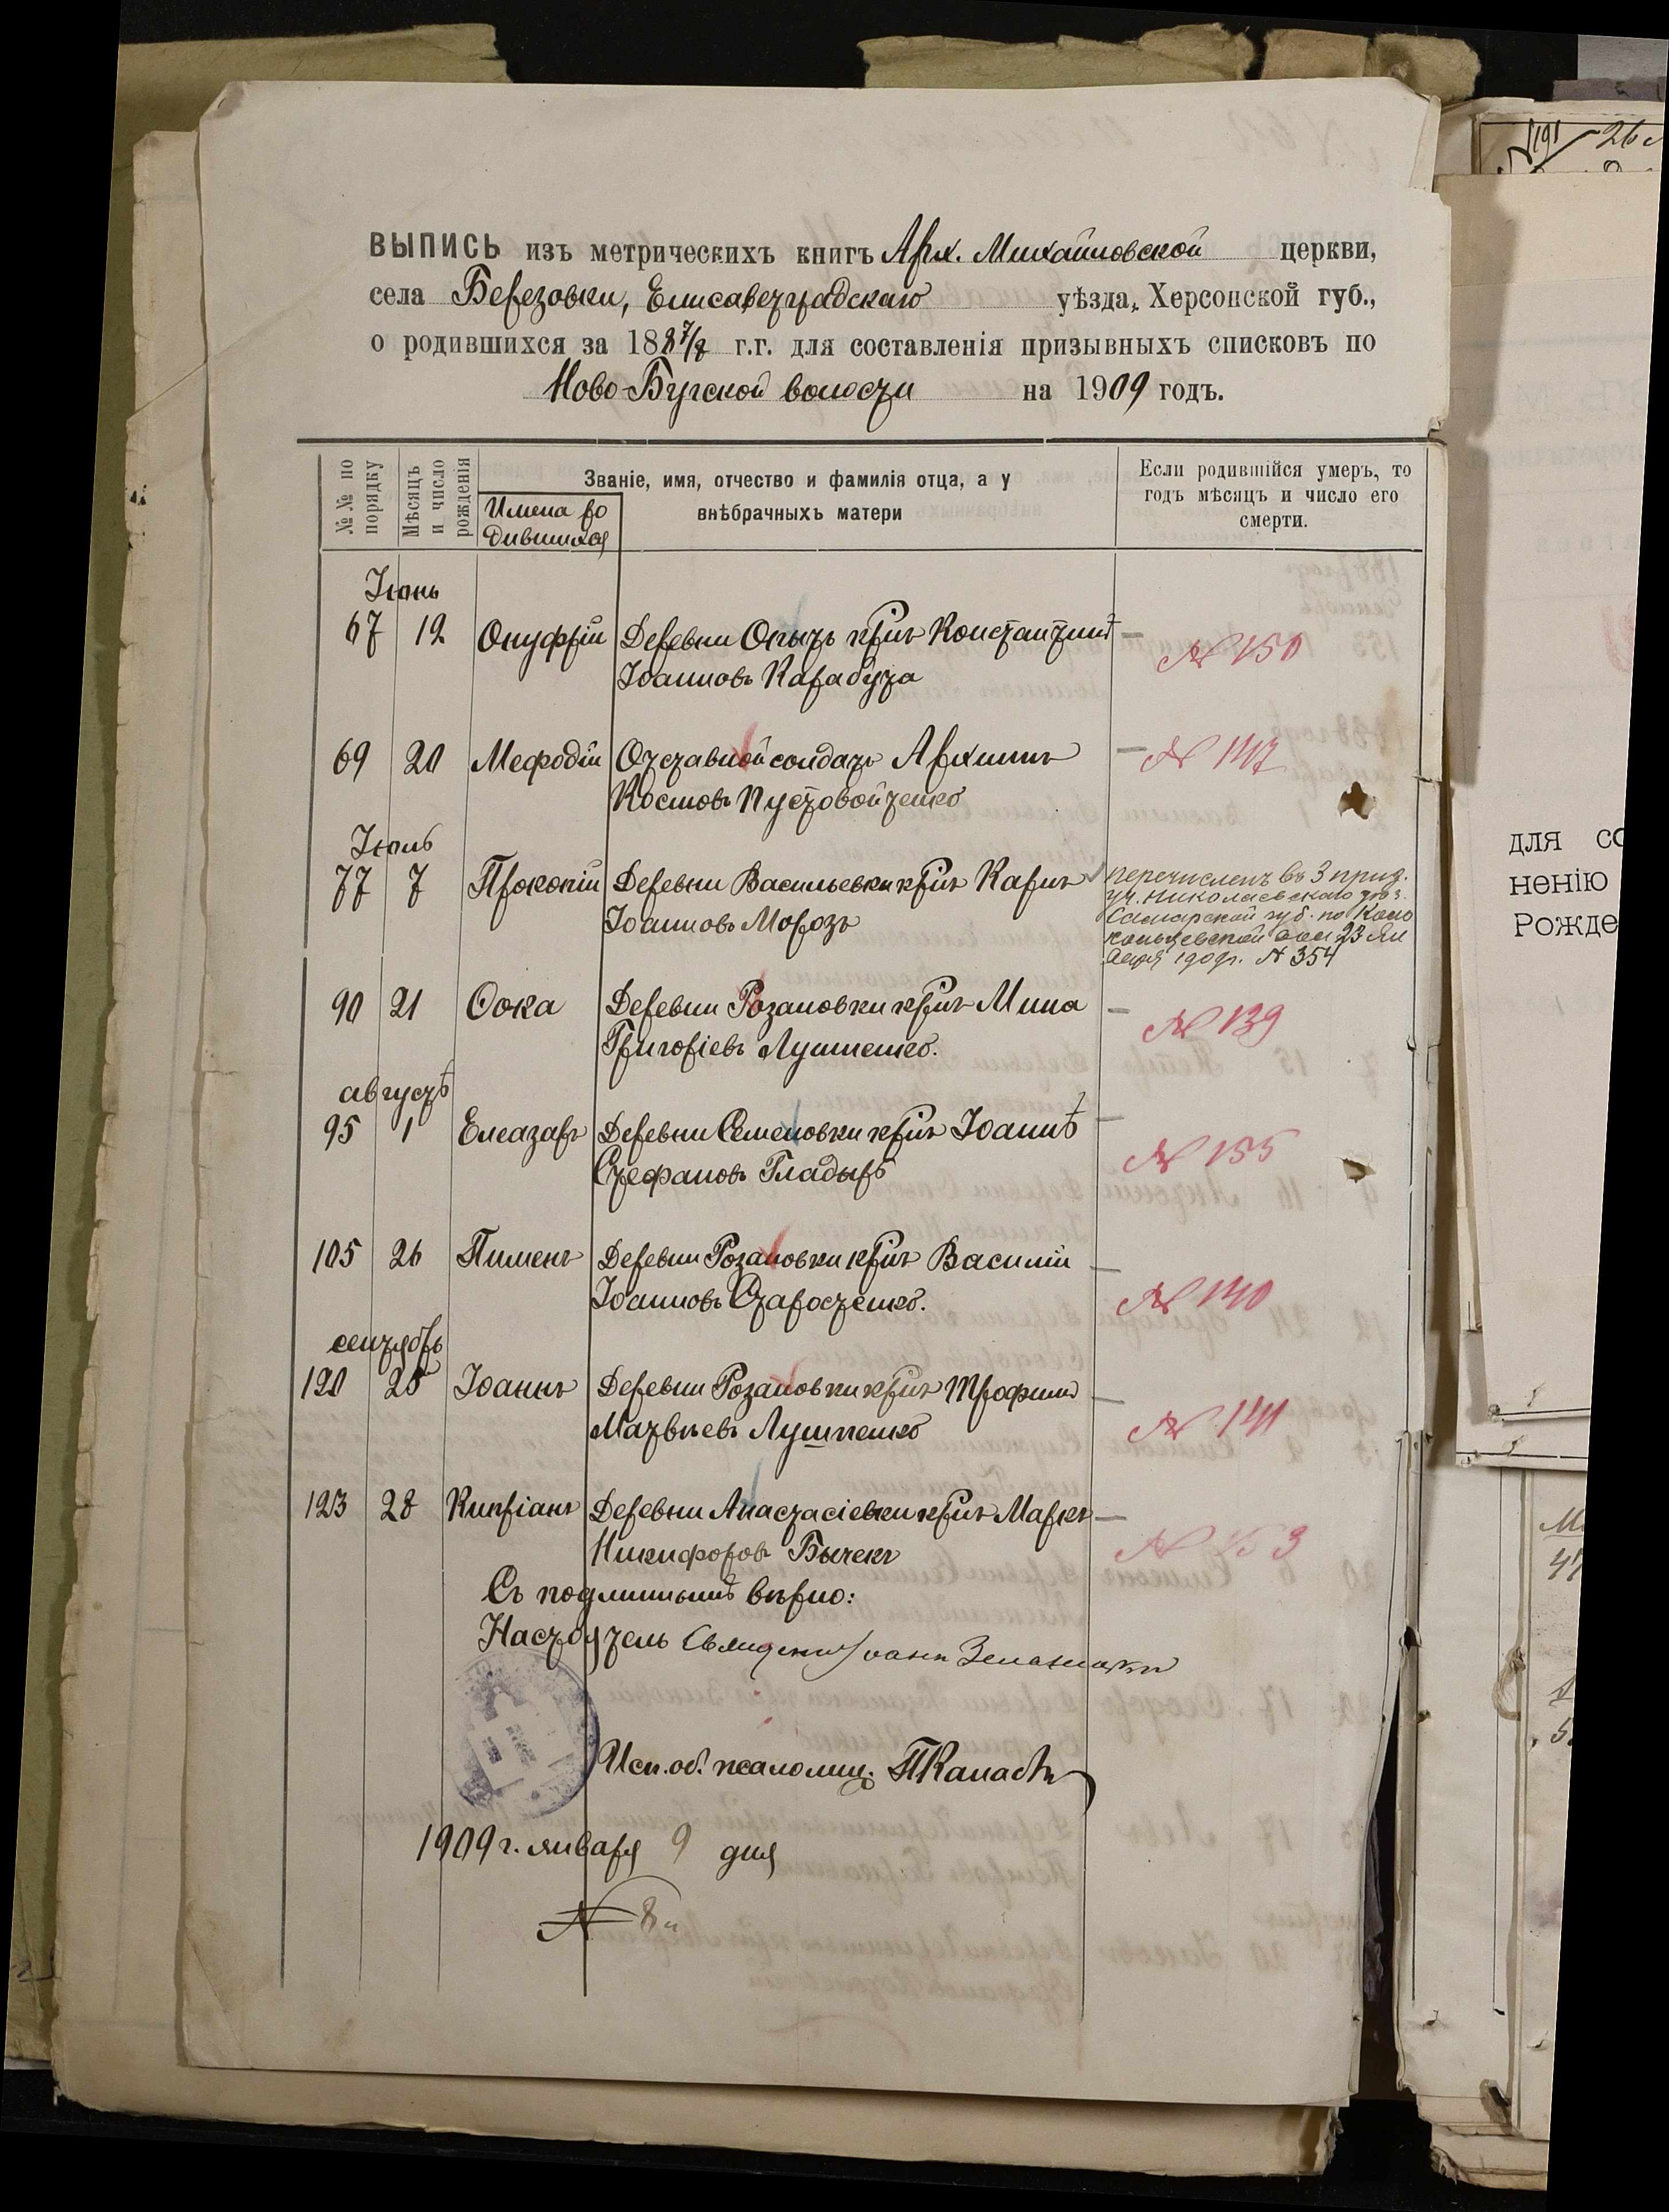 ВЫПИСЬ изъ метрическихъ книгъ Арх. Михайловской церкви,
села Березовки, Елисаветградскаго уѣзда, Херсонской губ.,
о родившихся за 1887/8 г.г. для составленія призывныхъ списковъ по
Ново-Бугской волости на 1909 годъ.
№№ по порядку
Мѣсяцъ и число рожденія
Имена родившихся
Званіе, имя, отчество и фамилія отца, а у
внѣбрачныхъ матери
Если родившійся умеръ, то
годъ мѣсяцъ и число его
смерти.
Іюнь
67 12 Онуфрій Деревни Опытъ кр‍нъ Константинъ — № 150
Іоанновъ Карабута
69 20 Мефодій Отставной солдатъ Архипъ — № 147
Космовъ Пустовойтенко
Іюль
77 7 Прокопій Деревни Васильевки крнъ Карпъ
Іоанновъ Морозъ
перечисленъ въ 3 приз.
уч. Николаевскаго уѣз.
Самарской губ. по
23 Ян
варя 1909г. № 354
90 21 Ѳока Деревни Розановки крнъ Мина — № 139
Григоріевъ Лушпенко.
августъ
95 1 Елеазаръ Деревни Семеновки крнъ Іоаннъ — № 155
Стефановъ Гладырь
105 26 Пименъ Деревни Розановки крнъ Василій — № 140
Іоанновъ Старостенко.
сентябрь
120 25 Іоаннъ Деревни Розановки крнъ Трофимъ — № 141
Матвѣевъ Лушпенко
123 28 Кипріанъ Деревни Анастасіевки крнъ Маркъ — № 153
Никифоровъ Бычекъ
Съ подлиннымъ вѣрно:
Настоятель Священникъ Іоаннъ
Исп. об. псаломщ.
1909 г. января 9 дня
№ 8
для
ненію
Рожде